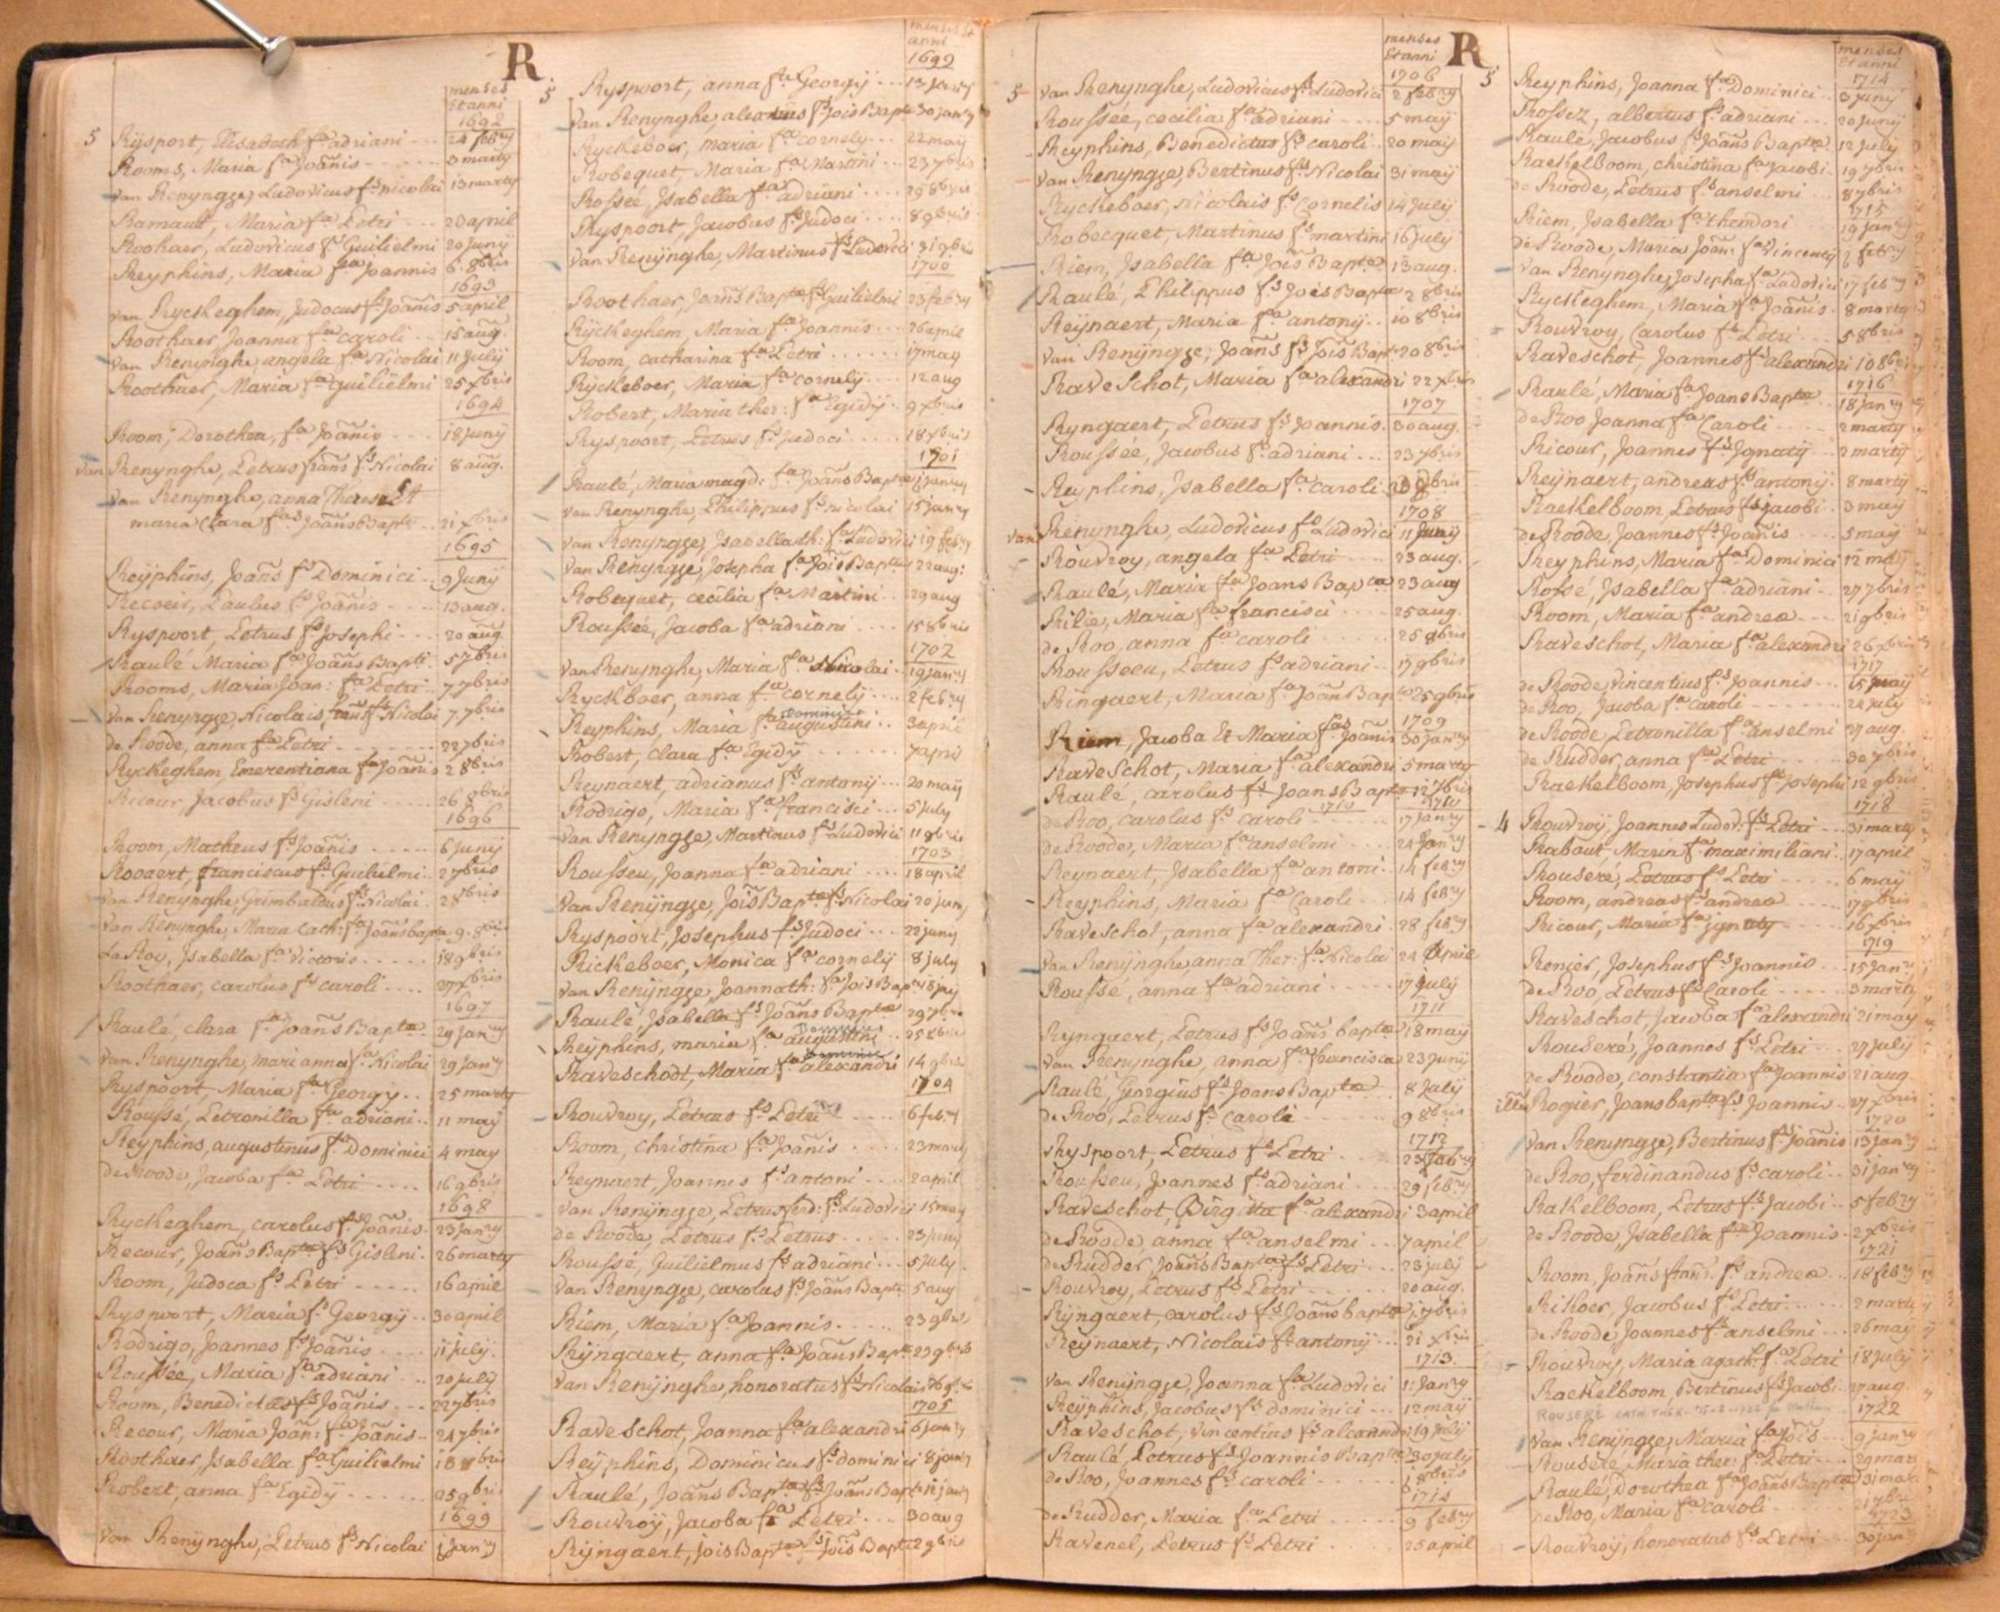 R.
menses
Et anni
1692
5 Rijsport, Elisabeth fa adriani 24 febry
Rooms, Maria fa Joañis 3 marty
van Renyngze, Ludovicus fs nicolai 13 marty
Ramaut, Maria fa Petri 20 april
Roohaer, Ludovicus fs Guilielmi 20 Juny
Reyphins, Maria fa Joannis 6 8bris
1693
van Ryckeghem, Judocus fs Joañis 5 april
Roothaer, Joanna fa caroli 15 aug.
van Renynghe, angela fa Nicolai 11 July
Roothaer, Maria fa Guilielmi 25 xbris
1694
Room, Dorothea, fa Joañis 18 juny
van Renynghe, Petrus frañs fs Nicolai 8 aug.
van Renynghe, anna Theresia Et
maria Clara fas Joañs Bapt. 21 xbris
1695
Reyphins, Joañs fs Dominici 9 Juny
Recoeir, Paulus fs Joañis 13 aug.
Ryspoort, Petrus fs Josephi 20 aug.
Raulé Maria fa Joañs Bapt. 5 7bris
Rooms, Maria Joan: fa Petri 7 7bris
van Renyngze, Nicolais frañs fs Nicolai 7 7bris
de Roode, anna fa Petri 22 7bris
Ryckeghem, Emerentiana fa Joañis 2 8bris
Ricour, Jacobus fs Gisleni 26 9bris
1696
Room, Matheus fs Joañis 6 juny
Rooaert, franciscus fs Guilielmi 2 7bris
van Renynghe, Grimbaldus fs Nicolai 2 8bris
van Renynghe, Maria Cath: fa Joañs bapta 9 8bris
La Roy, Isabella fa Victoris 18 9bris
Roothaer, carolus fs caroli 27 xbris
1697
Raulé, clara fa Joañs Bapta 29 Janry
van Renynghe, mari anna fa Nicolai 29 Janry
Ryspoort, Maria fa Georgy 25 marty
Roussé, Petronilla fa adriani 11 may
Reyphins, augustinus fs Dominici 4 may
de Roode, Jacoba fa Petri 16 9bris
1698
Ryckeghem, carolus fs Joañis 23 Janry
Recour, Joañs Bapta fs Gisleni 26 marty
Room, Judoca fs Petri 16 april
Ryspoort, Maria fs Georgÿ 30 april
Rodrigo, Joannes fs Joañis 11 July
Roussée, Maria fa adriani 20 july
Room, Benedictus fs Joañis 22 7bris
Recour, Maria Joañ: fa Joañis 24 7bris
Roothaer, Isabella fa Guilielmi 18 8bris
Robert, anna fa Egidÿ 25 9bris
1699
van Renÿnghe, Petrus fs Nicolai 6 Janry
menses Et
anni
1699
5 Ryspoort, anna fa Georgÿ 13 Janry
van Renynghe, fs Jois Bapta 30 janry
Ryckeboer, maria fa cornely 22 may
Robequet, Maria fa Martini 23 7bris
Rossée, Isabella fa adriani 29 8bris
Ryspoort, Jacobus fs Judoci 8 9bris
van Renÿnghe, Martinus fs Ludovici
1700
Roothaer, Joañs Bapta fs Guilielmi 23 febry
Rÿckeghem, Maria fa Joannis 26 april
Room, catharina fa Petri 17 may
Ryckeboer, Maria fa cornely 12 aug
Robert, Maria ther: fa Egidÿ 9 xbris
Ryspoort, Petrus fs Judoci 18 xbris
1701
Raulé, Maria magd: fa Joañs Bapta 6 janry
van Renynghe, Philippus fs nicolai 15 janry
van Renyngze, Isabella th: fa Ludovici 19 febry
van Renyngze, Josepha fa Jois Bapta 22 aug:
Robequet, cecilia fa Martini 29 aug
Roussée, Jacoba fa adriani 15 8bris
1702
van Renynghe, Maria fa Nicolai 19 janry
Ryckboer, anna fa cornelÿ 2 febry
dominici
Reyphins, Maria fa augustini 3 april
Robert, Clara fa Egidÿ 7 april
Reynaert, adrianus fs antonÿ 20 may
Rodrigo, Maria fa francisci 5 july
van Renyngze, Martinus fs Ludovici 11 9bris
1703
Rousseu, Joanna fa adriani 18 april
van Renÿngze, Jois Bapta fs Nicolai 20 juny
Ryspoort, Josephus fs Judoci 22 juny
Rickeboer, Monica fa cornelÿ 8 july
van Renÿngze, Joanna th: fa Jois Bapta 18 july
Raulé, Isabella fs Joañs Bapta 29 7bris
Reyphins, maria fa augustini 25 xbris
Raveschoot, Maria fa alexandri 14 9bris
1704
Rouvroy, Petrus fs Petri 6 febry
Room, Christina fa Joañis 23 marty
Reynaert, Joannes fs antoni 2 april
van Renÿngze, Petrus ferd: fs Ludovici 15 may
de Roode, Petrus fs Petrus 23 juny
Roussé, Guilielmus fs adriani 5 july
van Renyngze, carolus fs Joañs Bapt. 5 aug
Riem, Maria fa Joannis 23 9bris
Rÿngaert, anna fa Joañs Bapt. 23 9bris
van Renÿnghe, honoratus fs Nicolai 26 9bris
1705
Raveschot, Joanna fa alexandri 6 janry
Reÿphins, Dominicus fs dominici 8 janry
Raulé, Joañs Bapta fs Joañs Bapt. 12 janry
Rouvroÿ, Jacoba fa Petri 30 aug
Rijngaert, Jois Bapta fs Jois Bapt. 2 9bris
R
menses
Et anni
1706
5 van Renynghe, Ludovicus fs Ludovici 2 febry
Roussée, cecilia fa adriani 5 maÿ
Reyphins, Benedictus fs caroli 20 maÿ
van Renyngze, Bertinus fs Nicolai 31 maÿ
Ryckeboer, Nicolais fs Cornelis 14 July
Robecquet, Martinus fs martini 16 july
Riem, Isabella fa Jois Bapta 13 aug.
Raulé, Philippus fs Jois Bapta 2 8bris
Reÿnaert, Maria fa antonÿ 10 8bris
van Renÿngze, Joañs fs Jois Bapt. 20 8bris
Raveschot, Maria fa alexandri 22 xbris
1707
Ryngaert, Petrus fs Joannis 30 aug.
Roussée, Jacobus fs adriani 23 7bris
Reyphins, Isabella fa Caroli 9bris
1708
van Renynghe, Ludovicus fs Ludovici 11 Juny
Rouvroy, angela fa Petri 23 aug.
Raulé, Maria fa Joans Bapta 23 aug
Rilie, Maria fa francisci 25 aug.
de Roo, anna fa caroli 25 9bris
Rousseeu, Petrus fs adriani 17 9bris
Ringaert, Maria fa Joañs Bapta 25 9bris
1709
Riem, Jacoba Et Maria fas Joañis 30 janry
Raveschot, Maria fa alexandri 5 marty
Raulé, carolus fs Joans Bapta 12 7bris
1710
de Roo, carolus fs caroli 17 Janry
de Roode, Maria fa anselmi 24 Janry
Reynaert, Isabella fa antoni 14 febry
Reyphins, Maria fa Caroli 14 febry
Raveschot, anna fa alexandri 28 febry
van Renÿnghe, anna Ther: fa Nicolai 24 april
Roussé, anna fa adriani 17 july
1711
Ryngaert, Petrus fs Joañs bapta 18 maÿ
van Renynghe, anna fa francisca 23 junÿ
Raulé, Georgius fs Joans Bapta 8 July
de Roo, Petrus fs Caroli 9 8bris
1712
Ryspoort, Petrus fs Petri 23 febry
Rousseu, Joannes fs adriani 29 febry
Raveschot, Birgitta fa alexandri 3 april
de Roode, anna fa anselmi 7 april
de Rudder, Joañs Bapta fs Petri 23 july
Rouvroy, Petrus fs Petri 20 aug.
Rÿngaert, carolus fs Joañs bapta 1 9bris
Reynaert, Nicolais fs antonÿ 21 xbris
1713
van Renÿngze, Joanna fa Ludovici 1 Janry
Reÿphins, Jacobus fs dominici 12 maÿ
Raveschot, vincentius fs alexandri 19 july
Raulé, Petrus fs Joannis Bapta 30 july
de Roo, Joannes fs caroli 1 8bris
1714
de Rudder, Maria fa Petri 9 febry
Ravenel, Petrus fs Petri 25 april
menses
Et anni
1714
5 Reyphins, Joanna fa Dominici 3 junÿ
Rossez, albertus fs adriani 20 juny
Raulé, Jacobus fs Joañs Bapta 12 july
Raekelboom, christina fa Jacobi 19 7bris
de Roode, Petrus fs anselmi 8 7bris
1715
Riem, Isabella fa theodori 19 janry
de Roode, Maria Joañ: fa vincenty 2 febry
van Renynghe, Josepha fa Ludovici 17 febry
Ryckeghem, Maria fa Joañis 8 marty
Rouvroy, Carolus fs Petri 5 8bris
Raveschot, Joannes fs alexandri 10 8bris
1716
Raulé, Maria fa Joans Bapta 18 janry
de Roo Joanna fa Caroli 2 marty
Ricour, Joannes fs Ignatÿ 2 marty
Reÿnaert, andreas fs antonÿ 8 marty
Raekelboom, Petrus fs Jacobi 3 maÿ
de Roode, Joannes fs Joañis 5 may
Reyphins, Maria fa Dominici 12 maÿ
Rossé, Isabella fa adriani 27 7bris
Room, Maria fa andrea 21 9bris
Raveschot, Maria fa alexandri 26 xbris
1717
de Roode, vincentius fs Joannis 15 maÿ
de Roo, Jacoba fa caroli 24 july
de Roode, Petronilla fa anselmi 27 aug.
de Rudder, anna fa Petri 30 7bris
Raekelboom, Josephus fs Josephi 12 9bris
1718
4 Rouvroÿ, Joannes Ludov: fs Petri 31 marty
Rabaut, Maria fa maximiliani 17 april
Rousere, Petrus fs Petri 6 maÿ
Room, andreas fs andrea 17 9bris
Ricour, Maria fa ignaty 16 xbris
1719
Renier, Josephus fs Joannis 15 janry
de Roo, Petrus fs Caroli 3 marty
Raveschot, Jacoba fa alexandri 21 may
Rouseré, Joannes fs Petri 27 july
de Roode, constantia fa Joannis 21 aug
Rogier, Joans bapta fs Joannis 27 xbris
1720
van Renyngze, Bertinus fs Joañis 13 janry
de Roo, ferdinandus fs caroli 31 janry
Rakelboom, Petrus fs Jacobi 5 febry
de Roode, Isabella fa Joannis 2 xbris
1721
Room, Joañs frañs. fs andrea 18 febry
Rikoer, Jacobus fs Petri 2 marty
de Roode Joannes fs anselmi 26 may
Rouvroy, Maria agath: fa Petri 18 july
Raekelboom, Bertinus fs Jacobi 27 aug.
1722
van Renÿngze, Maria fa Jois 9 janry
Rousere, Maria ther: fa Petri 29 mar
Raulé, Dorothea fa Joañs Bapta 31 mar
de Roo, Maria fa caroli 21 7bris
1723
Rouvroÿ, honoratus fs Petri 30 jan